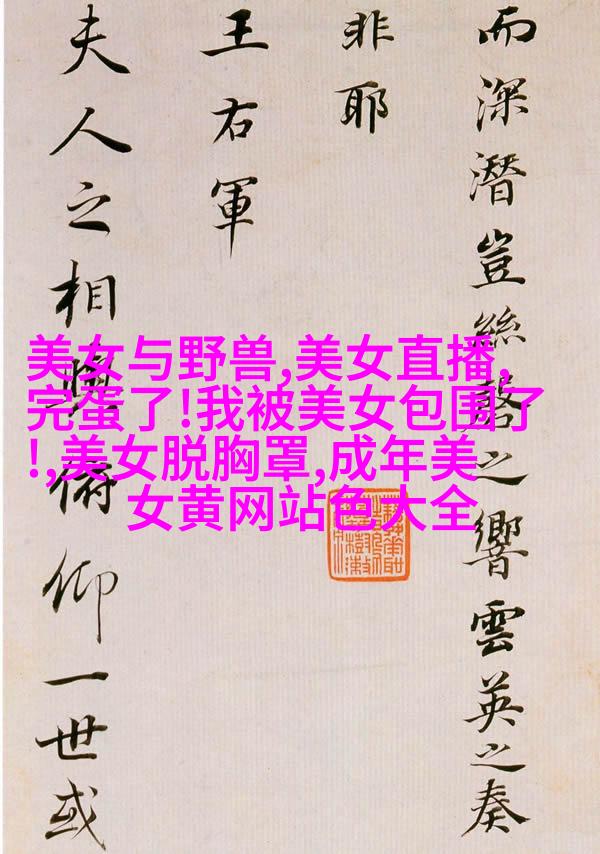 而深潛豈絲磬之響雲英之奏
非耶
王右軍
夫人之相與俯仰一世或
美女与野兽,美女直播,
完蛋了!我被美女包围了
!,美女脱胸罩,成年美
女黄网站色大全